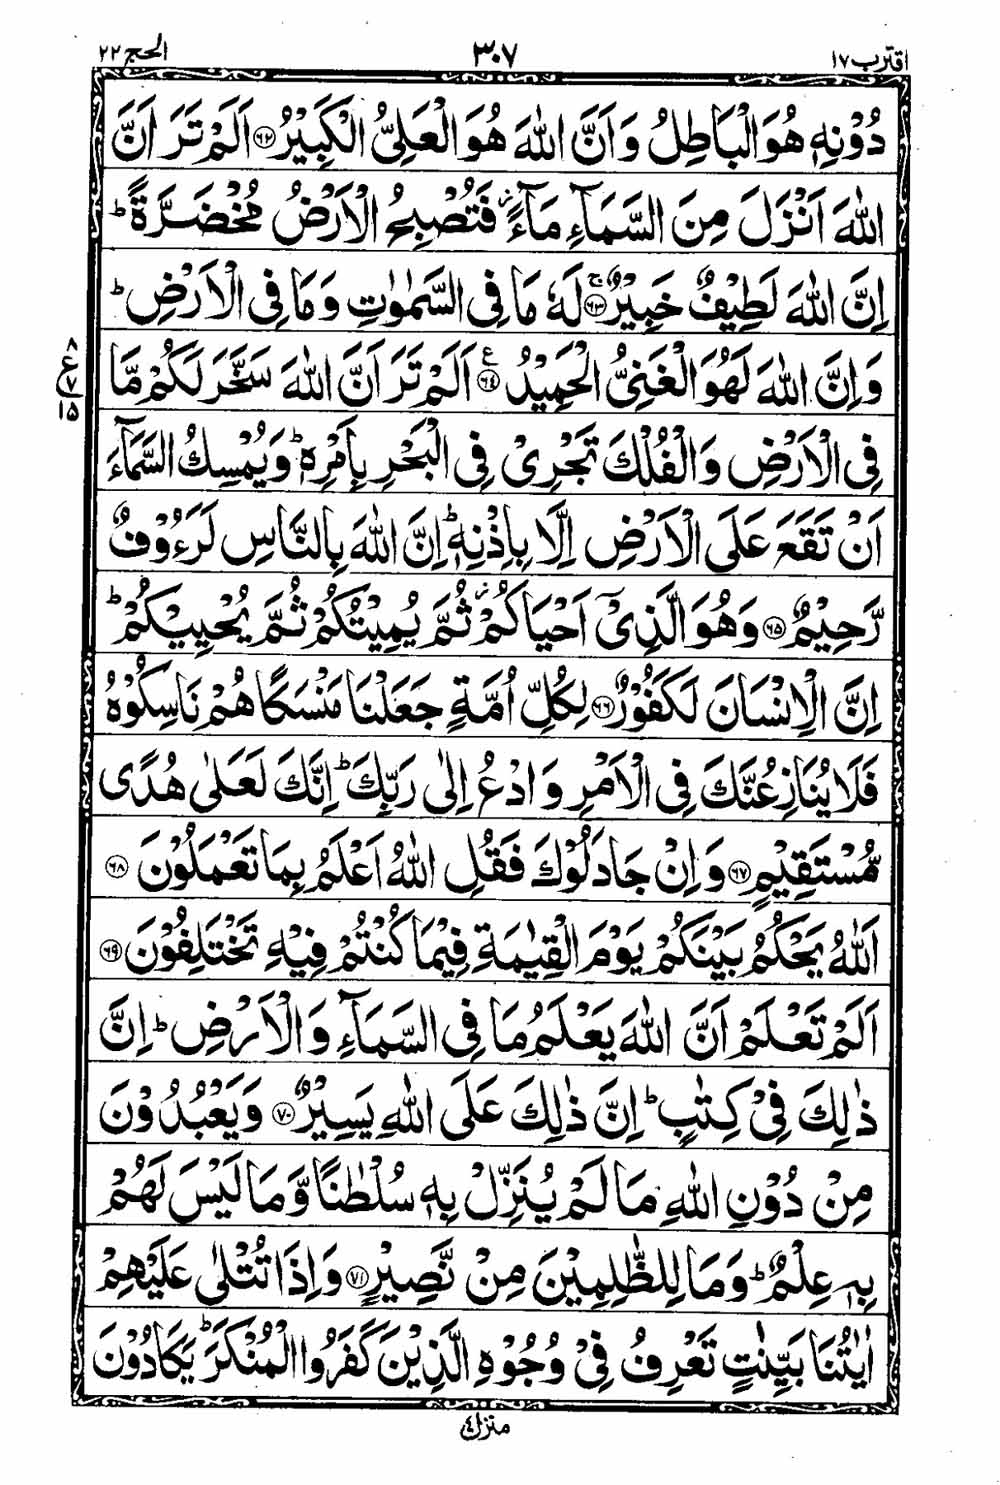 اقترب ١٧
٣٠٧
الحج ٢٢
دُوْنِهٖ هُوَ الْبَاطِلُ وَ اَنَّ اللّٰهَ هُوَ الْعَلِیُّ الْكَبِیْرُ ﴿٦٢﴾ اَلَمْ تَرَ اَنَّ
اللّٰهَ اَنْزَلَ مِنَ السَّمَآءِ مَآءً ز فَتُصْبِحُ الْاَرْضُ مُخْضَرَّةً ؕ
اِنَّ اللّٰهَ لَطِیْفٌ خَبِیْرٌ ﴿٦٣﴾ۚ لَهٗ مَا فِی السَّمٰوٰتِ وَ مَا فِی الْاَرْضِ ؕ
وَ اِنَّ اللّٰهَ لَهُوَ الْغَنِیُّ الْحَمِیْدُ ﴿٦٤﴾ ع اَلَمْ تَرَ اَنَّ اللّٰهَ سَخَّرَ لَكُمْ مَّا
٨
ع ٧
١٥
فِی الْاَرْضِ وَ الْفُلْكَ تَجْرِیْ فِی الْبَحْرِ بِاَمْرِهٖ ؕ وَ یُمْسِكُ السَّمَآءَ
اَنْ تَقَعَ عَلَی الْاَرْضِ اِلَّا بِاِذْنِهٖ ؕ اِنَّ اللّٰهَ بِالنَّاسِ لَرَءُوْفٌ
رَّحِیْمٌ ﴿٦٥﴾ وَ هُوَ الَّذِیْۤ اَحْیَاكُمْ ز ثُمَّ یُمِیْتُكُمْ ثُمَّ یُحْیِیْكُمْ ؕ
اِنَّ الْاِنْسَانَ لَكَفُوْرٌ ﴿٦٦﴾ لِكُلِّ اُمَّةٍ جَعَلْنَا مَنْسَكًا هُمْ نَاسِكُوْهُ
فَلَا یُنَازِعُنَّكَ فِی الْاَمْرِ وَ ادْعُ اِلٰی رَبِّكَ ؕ اِنَّكَ لَعَلٰی هُدًی
مُّسْتَقِیْمٍ ﴿٦٧﴾ وَ اِنْ جَادَلُوْكَ فَقُلِ اللّٰهُ اَعْلَمُ بِمَا تَعْمَلُوْنَ ﴿٦٨﴾
اَللّٰهُ یَحْكُمُ بَیْنَكُمْ یَوْمَ الْقِیٰمَةِ فِیْمَا كُنْتُمْ فِیْهِ تَخْتَلِفُوْنَ ﴿٦٩﴾
اَلَمْ تَعْلَمْ اَنَّ اللّٰهَ یَعْلَمُ مَا فِی السَّمَآءِ وَ الْاَرْضِ ؕ اِنَّ
ذٰلِكَ فِیْ كِتٰبٍ ؕ اِنَّ ذٰلِكَ عَلَی اللّٰهِ یَسِیْرٌ ﴿٧٠﴾ وَ یَعْبُدُوْنَ
مِنْ دُوْنِ اللّٰهِ مَا لَمْ یُنَزِّلْ بِهٖ سُلْطٰنًا وَّ مَا لَیْسَ لَهُمْ
بِهٖ عِلْمٌ ؕ وَ مَا لِلظّٰلِمِیْنَ مِنْ نَّصِیْرٍ ﴿٧١﴾ وَ اِذَا تُتْلٰی عَلَیْهِمْ
اٰیٰتُنَا بَیِّنٰتٍ تَعْرِفُ فِیْ وُجُوْهِ الَّذِیْنَ كَفَرُوا الْمُنْكَرَ ؕ یَكَادُوْنَ
منزل ٤